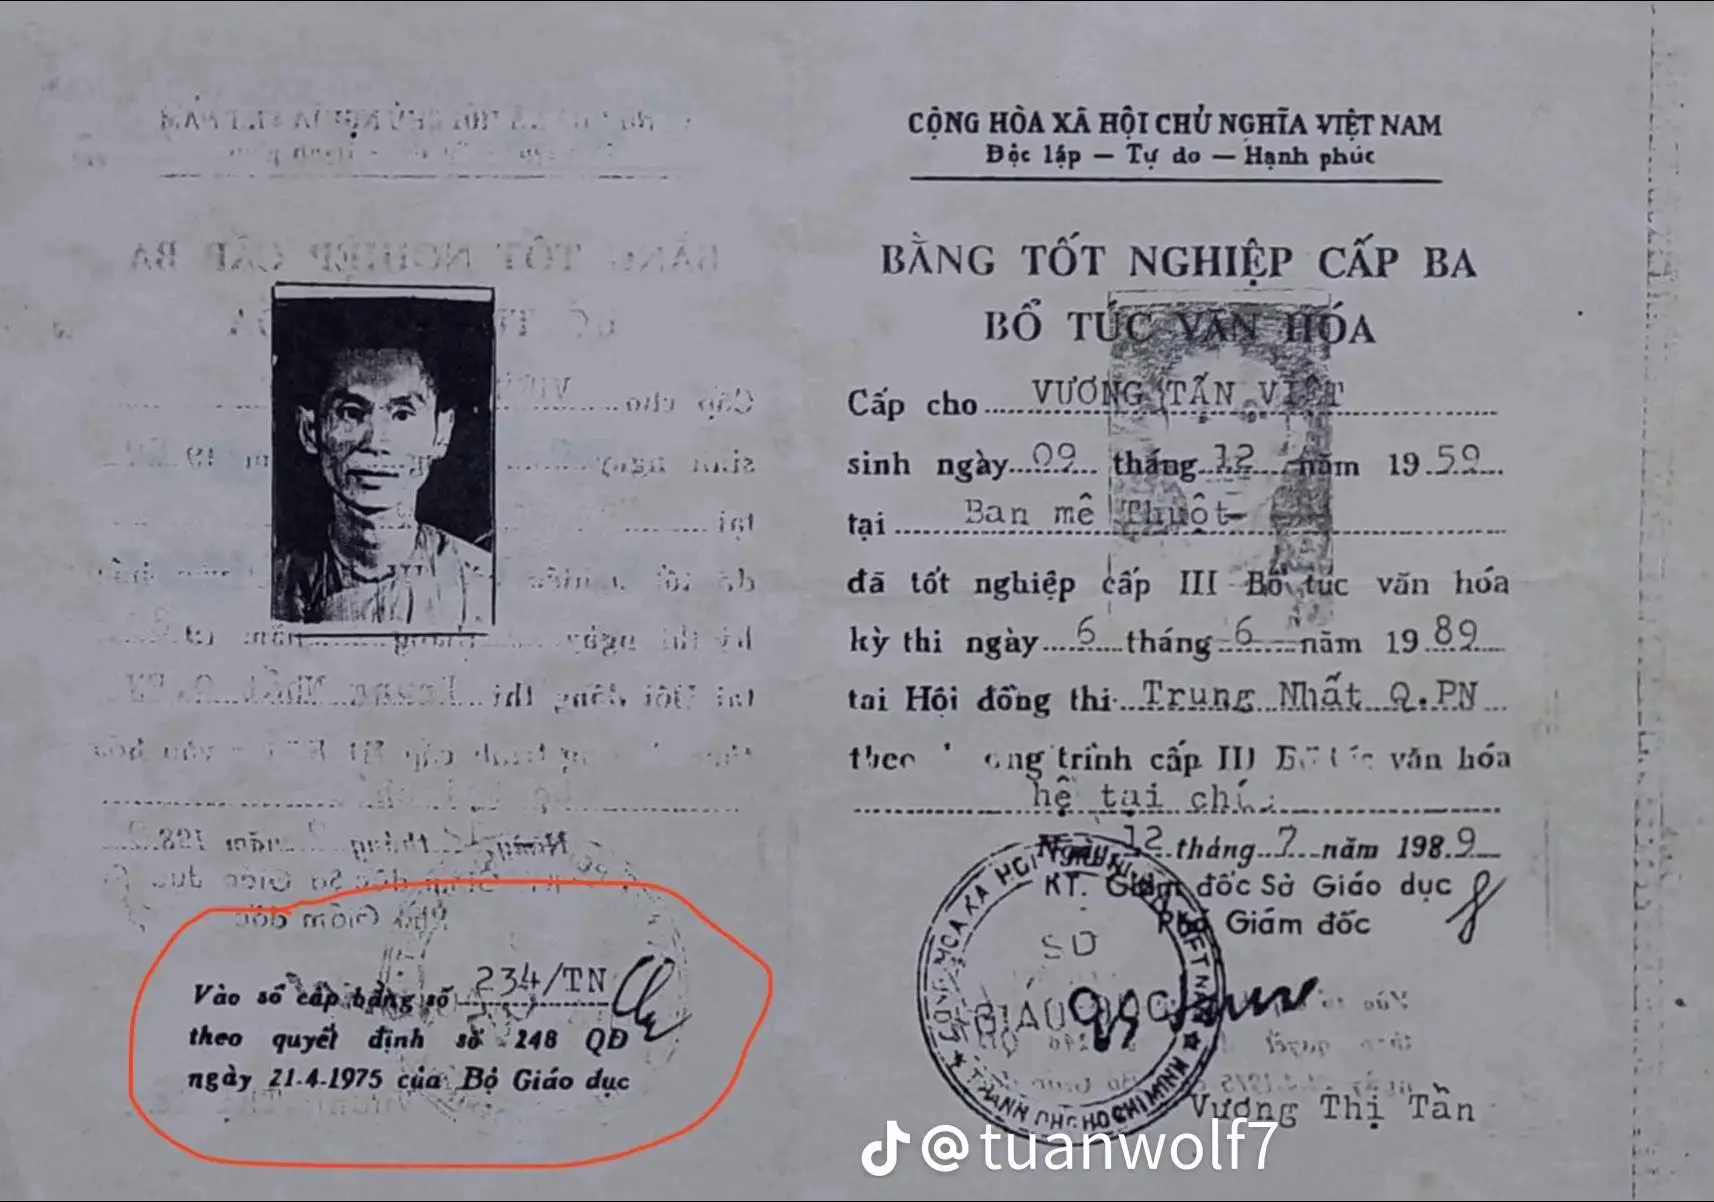 Vào sổ cấp bằng số 234/TN
theo quyết định số 248 QĐ
ngày 21-4-1975 của Bộ Giáo dục
CỘNG HÒA XÃ HỘI CHỦ NGHĨA VIỆT NAM
Độc lập — Tự do — Hạnh phúc
BẰNG TỐT NGHIỆP CẤP BA
BỔ TÚC VĂN HÓA
Cấp cho VƯƠNG TẤN VIỆT
sinh ngày 09 tháng 12 năm 1959
tại Ban mê Thuột
đã tốt nghiệp cấp III Bổ túc văn hóa
kỳ thi ngày 6 tháng 6 năm 1989
tại Hội đồng thi Trung Nhất Q.PN
theo trình cấp III văn hóa
hệ tại
12 tháng 7 năm 1989
KT. Giám đốc Sở Giáo dục
Phó Giám đốc
SỞ
GIÁO DỤC
THÀNH PHỐ HỒ CHÍ MINH
Vương Thị Tần
@tuanwolf7